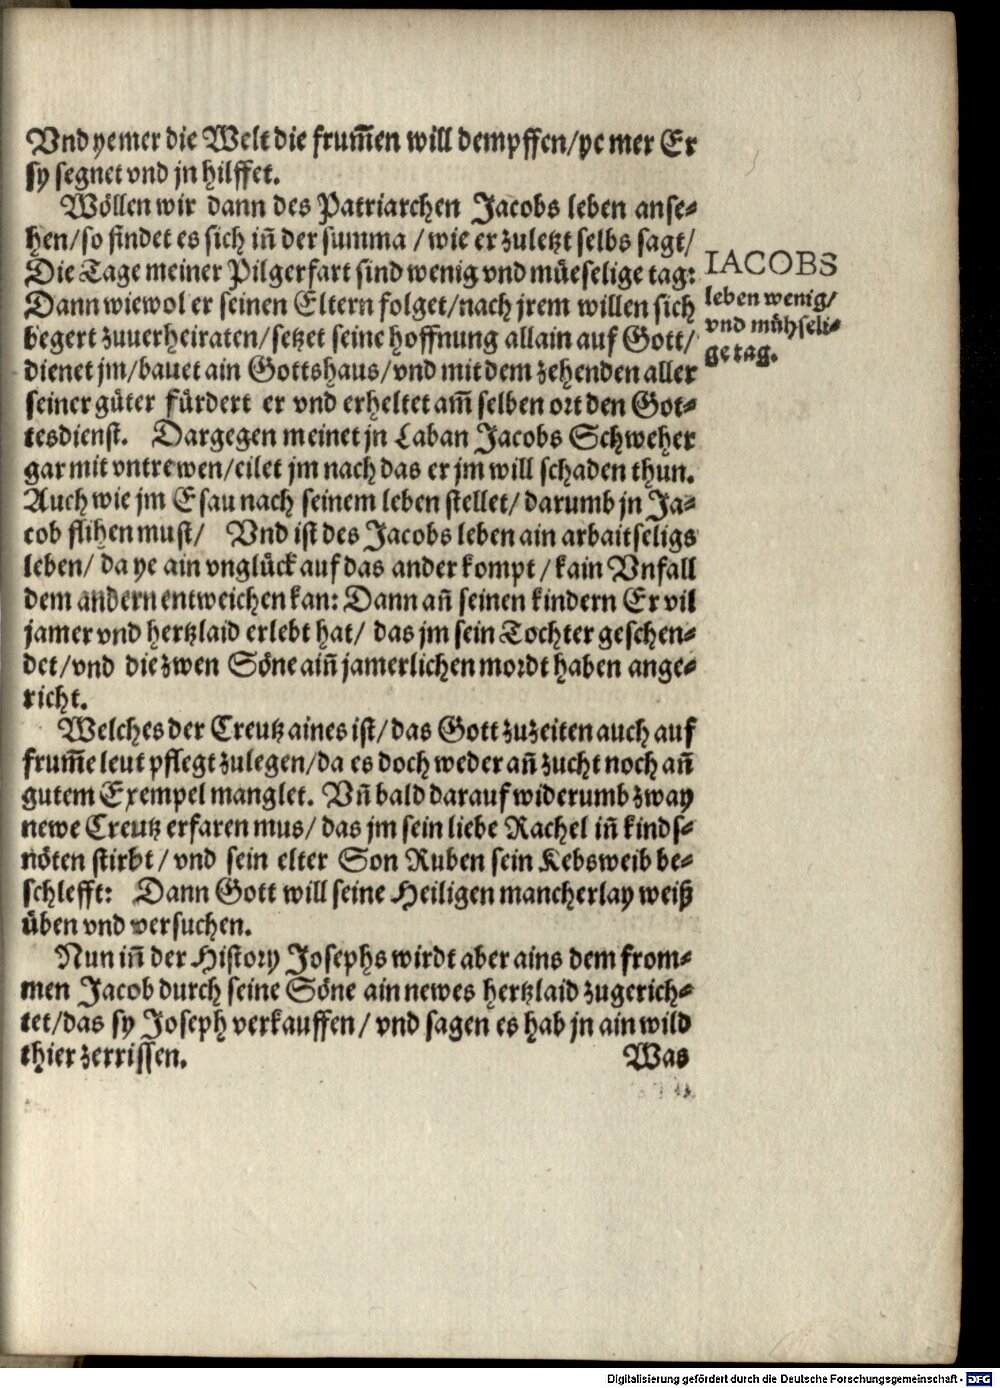 Vnd yemer die Welt die frum̃en will dempffen/ye mer Er
sy segnet vnd jn hilffet.
Wöllen wir dann des Patriarchen Jacobs leben anse⸗
hen/so findet es sich iñ der summa /wie er zuletzt selbs sagt/
Die Tage meiner Pilgerfart sind wenig vnd müeselige tag:
Dann wiewol er seinen Eltern folget/nach jrem willen sich
begert zuuerheiraten/setzet seine hoffnung allain auf Gott/
dienet jm/bauet ain Gottshaus/vnd mit dem zehenden aller
seiner güter fürdert er vnd erheltet am̃ selben ort den Got⸗
tesdienst. Dargegen meinet jn Laban Jacobs Schweher
gar mit vntrewen/eilet jm nach das er jm will schaden thun.
Auch wie jm Esau nach seinem leben stellet/ darumb jn Ja⸗
cob flihen must/ Vnd ist des Jacobs leben ain arbaitseligs
leben/ da ye ain vnglück auf das ander kompt /kain Vnfall
dem andern entweichen kan: Dann añ seinen kindern Er vil
jamer vnd hertzlaid erlebt hat/ das jm sein Tochter geschen⸗
det/vnd die zwen Söne aiñ jamerlichen mordt haben ange⸗
richt.
Welches der Creutz aines ist/das Gott zuzeiten auch auf
frum̃e leut pflegt zulegen/da es doch weder añ zucht noch añ
gutem Exempel manglet. Vñ bald darauf widerumb zway
newe Creutz erfaren mus/ das jm sein liebe Rachel iñ kinds⸗
nöten stirbt/ vnd sein elter Son Ruben sein Kebsweib be⸗
schlefft: Dann Gott will seine Heiligen mancherlay weiß
üben vnd versuchen.
Nun iñ der History Josephs wirdt aber ains dem from⸗
men Jacob durch seine Söne ain newes hertzlaid zugerich⸗
tet/das sy Joseph verkauffen/ vnd sagen es hab jn ain wild
thier zerrissen.
Was
IACOBS
leben wenig/
vnd mühseli⸗
ge tag.
Digitalisierung gefördert durch die Deutsche Forschungsgemeinschaft - DFG